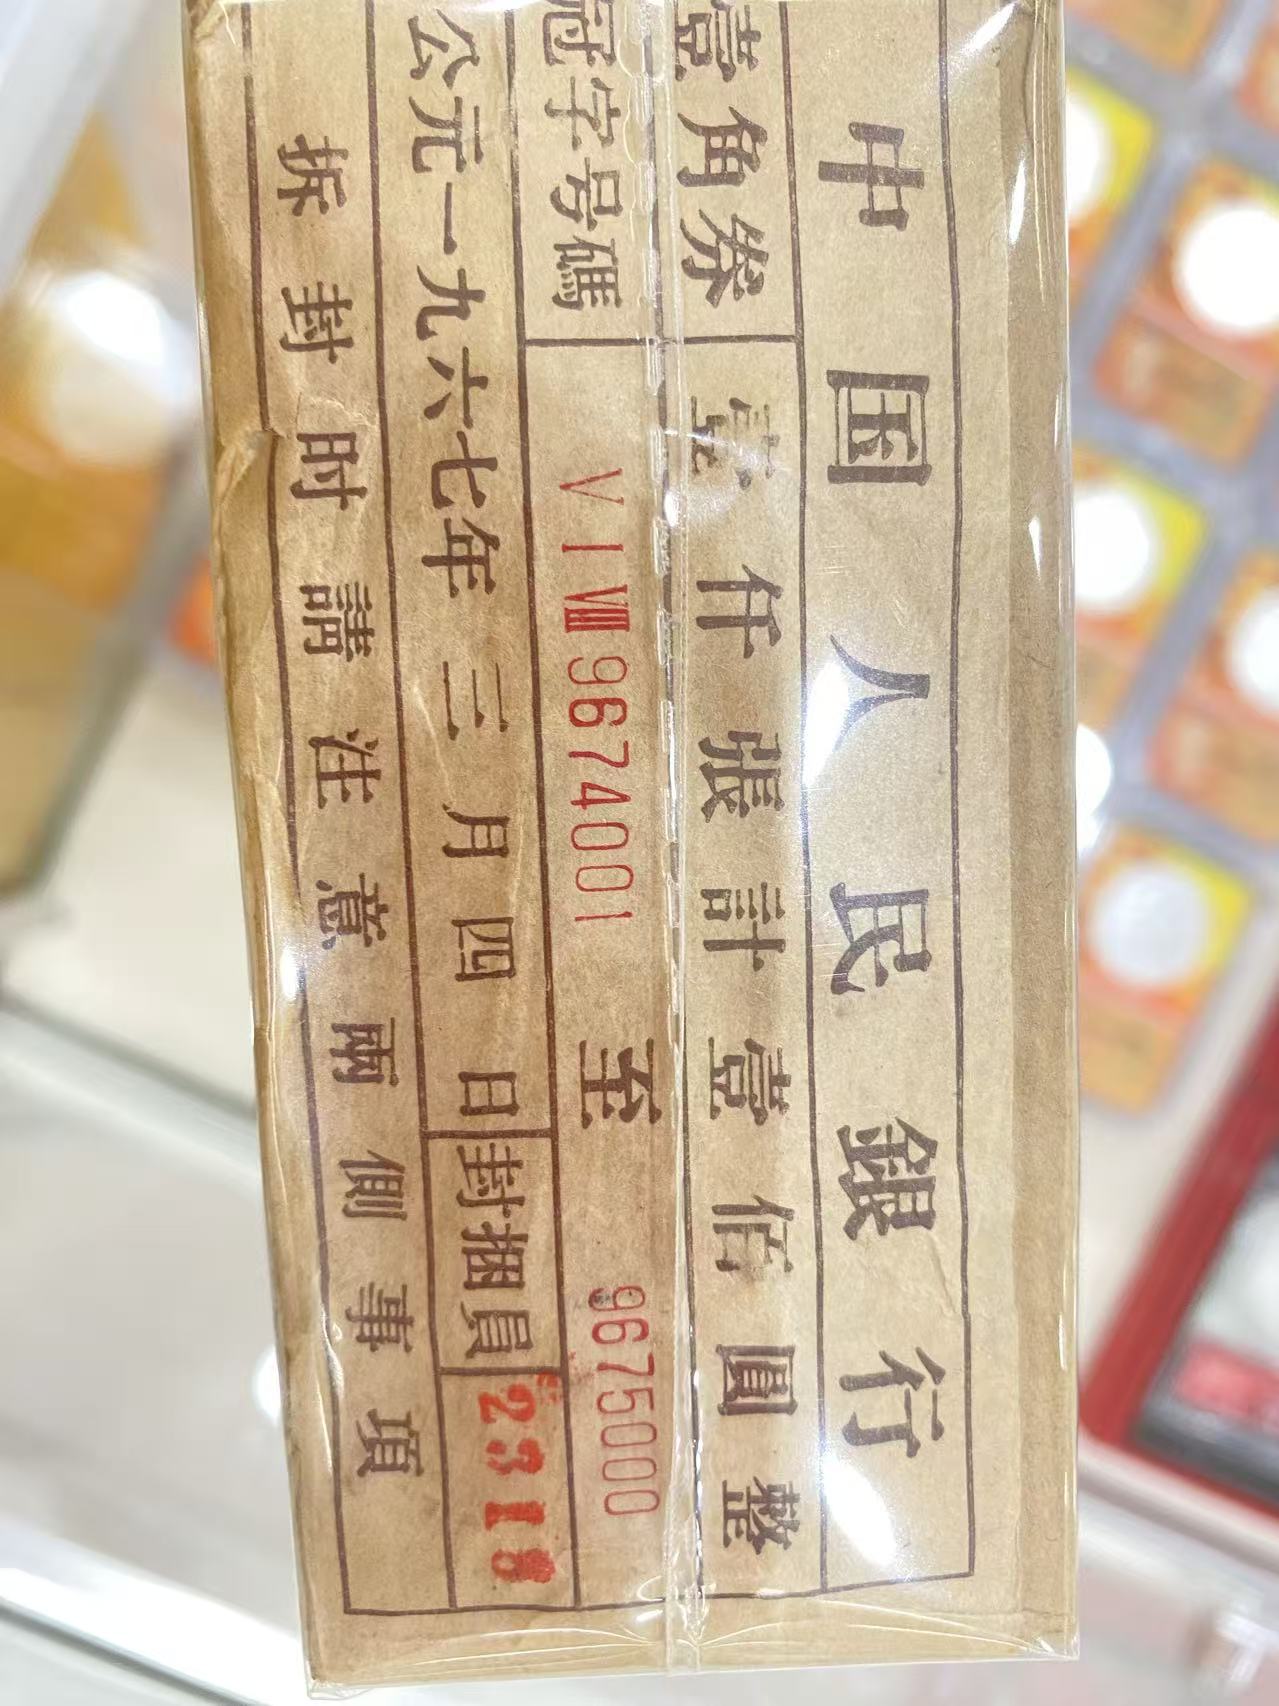 中国人民銀行
壹角券 壹仟張計壹佰圓整
冠字号碼 V I VIII 9674001 至 9675000
公元一九六七年三月四日 封捆員 2318
拆封时請注意兩側事項